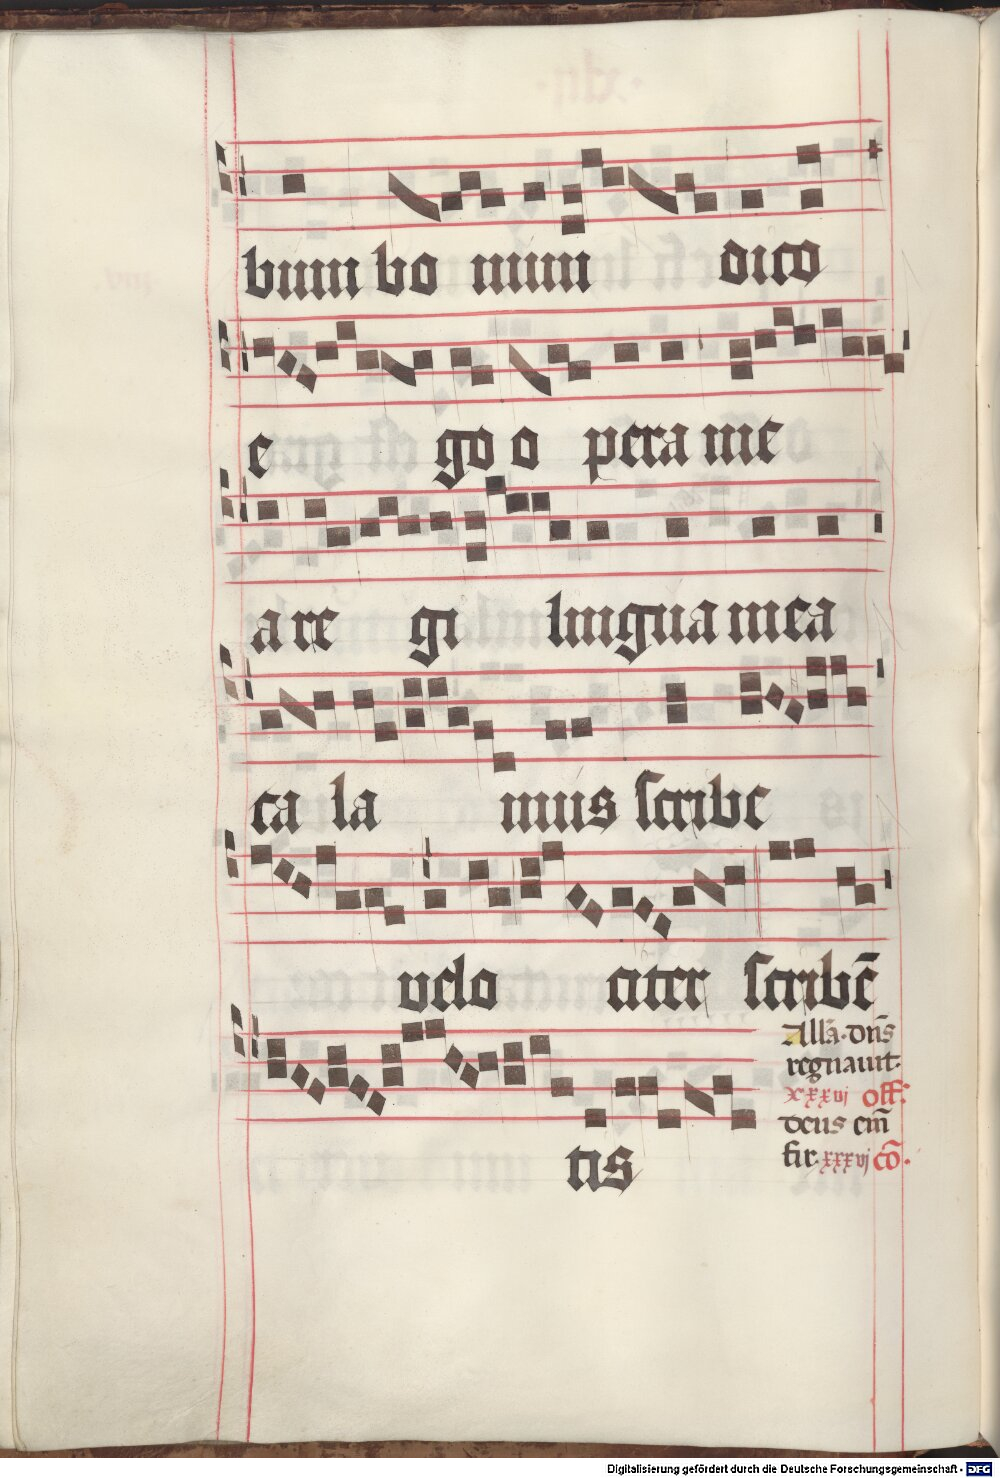 bum bo num dico
e go o pera me
a re gi lingua mea
ca la mus scribe
velo citer scribē
Allā. dn̄s
regnauit.
xxxvj off̄.
deus em̄
fir. xxxvj cō.
tis
Digitalisierung gefördert durch die Deutsche Forschungsgemeinschaft - DFG